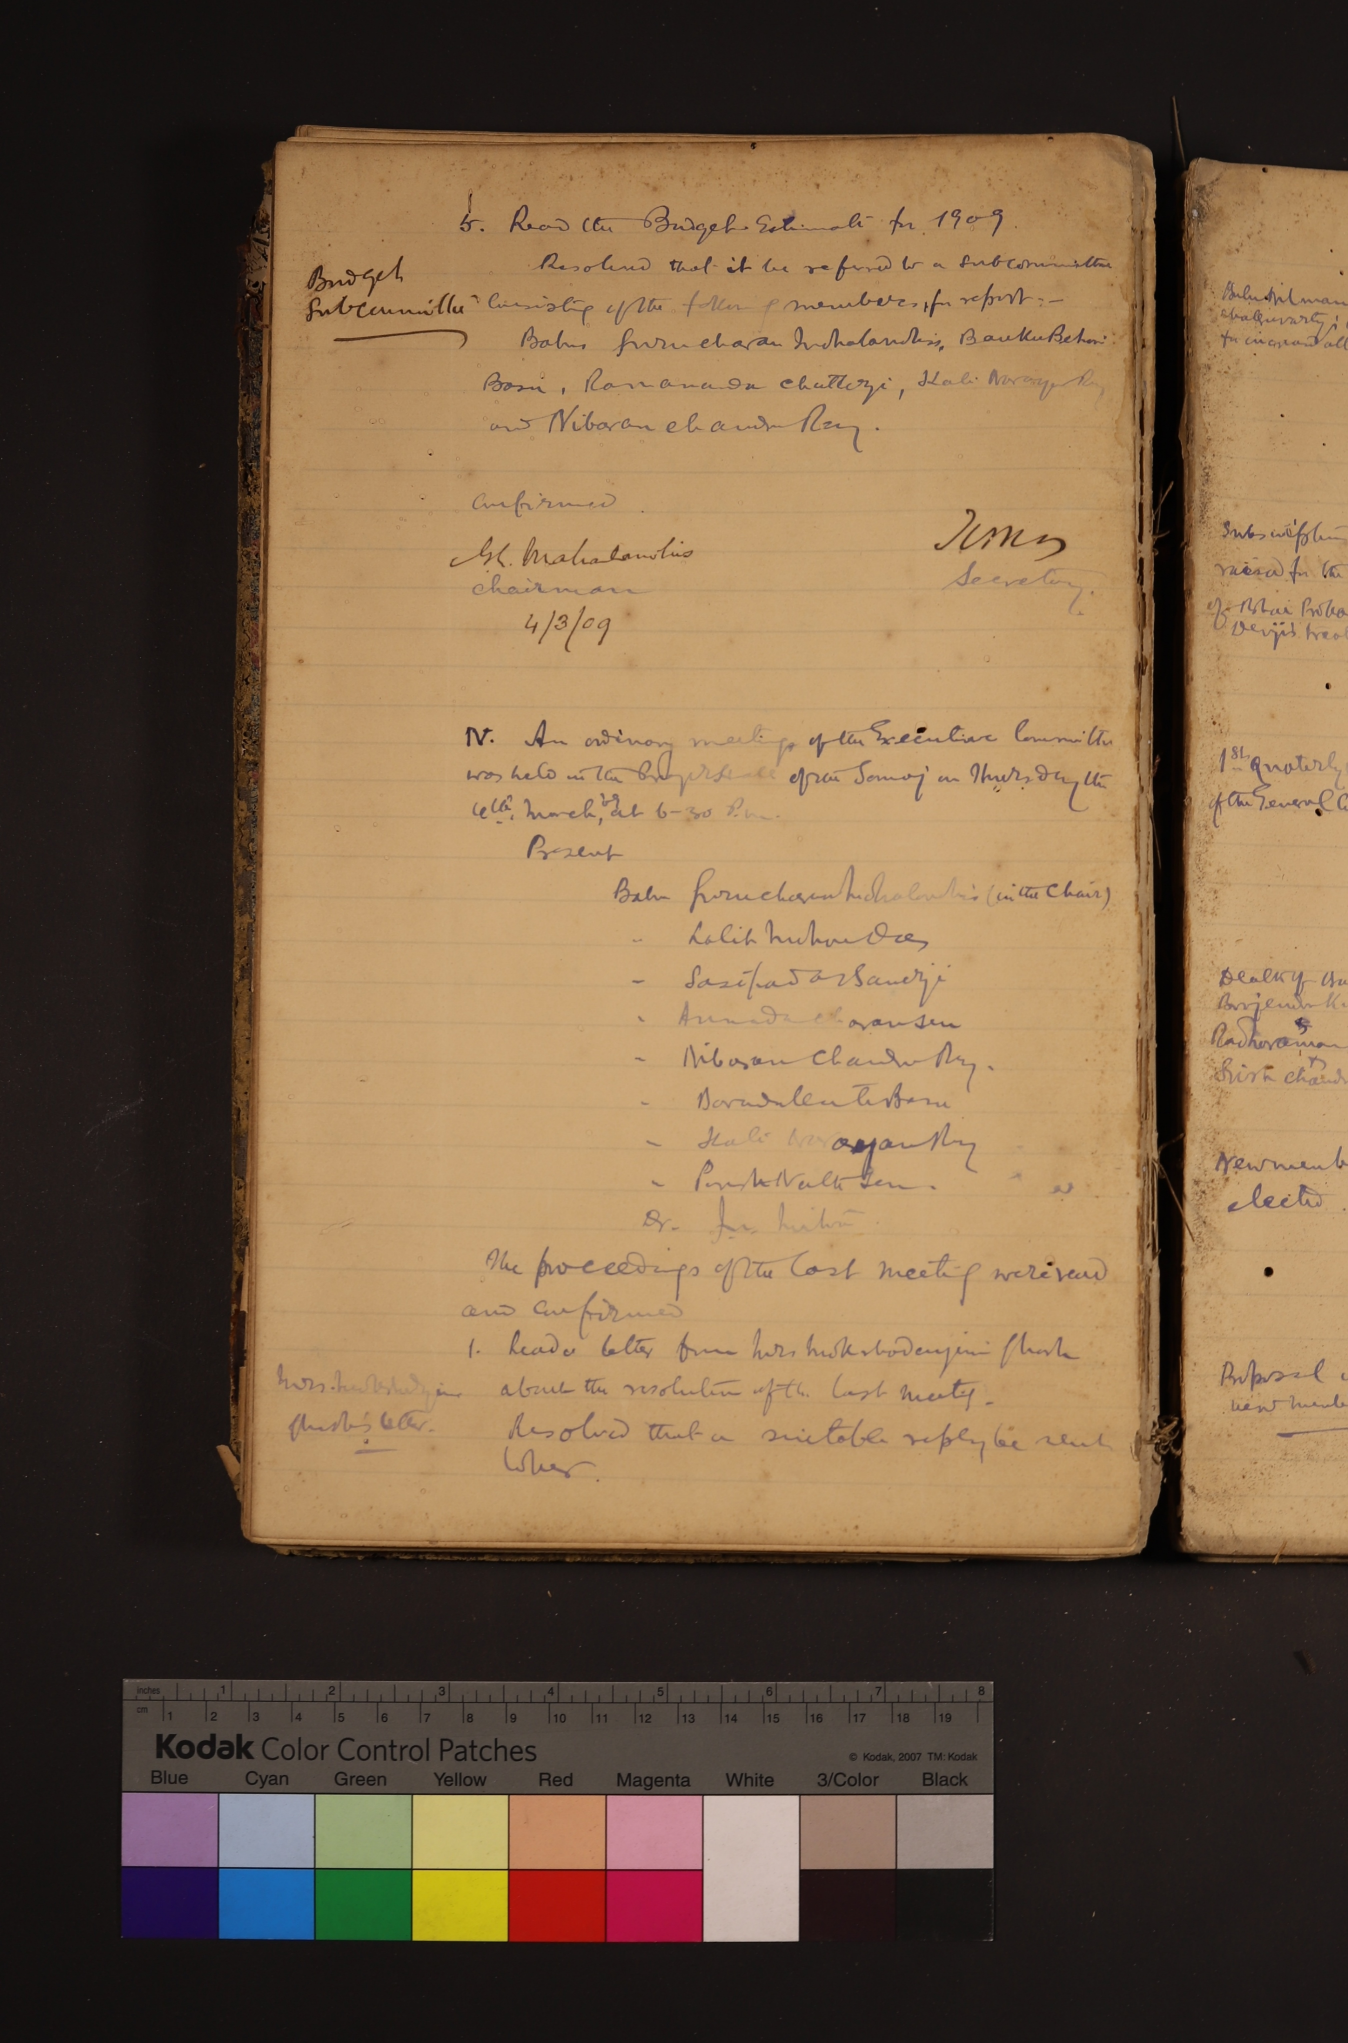 5. Read the Budget Estimate for 1909.
Budget
Subcommittee
Resolved that it be referred to a Subcommittee
Consisting of the following members, for report:—
Babus Guru charan Mahalanobis, Banku Behari
Basu, Ramananda Chatterji, Kali Narayan Ray
and Nibaran chandra Ray.
Confirmed
G. C. Mahalanobis
Chairman
4/3/09
Secretary.
IV. An ordinary meeting of the Executive Committee
was held in the of the Samaj on Thursday the
4th March, 09 at 6-30 P.m.
Present
Babu Guru charan Mahalanobis (in the Chair)
" Lalit Mohan Das
" Sasipada Banerji
" Annada charan Sen
" Nibaran Chandra Ray.
" Barada Basu
" Kali Narayan Ray
" Paresh Nath Sen.
Dr.
The proceedings of the last meeting were read
and confirmed
1. Read a letter from Mrs Ghosh
about the resolution of the last meeting.
Mrs.
Ghosh's letter.
Resolved that a suitable reply be sent
to her.
Babu
for
Subscription
raised for the
of Bhai
1st Quaterly
of the General C
Death of
New memb
elected.
Proposal
new memb
inches 1 2 3 4 5 6 7 8
cm 1 2 3 4 5 6 7 8 9 10 11 12 13 14 15 16 17 18 19
Kodak Color Control Patches
© Kodak, 2007 TM: Kodak
Blue Cyan Green Yellow Red Magenta White 3/Color Black